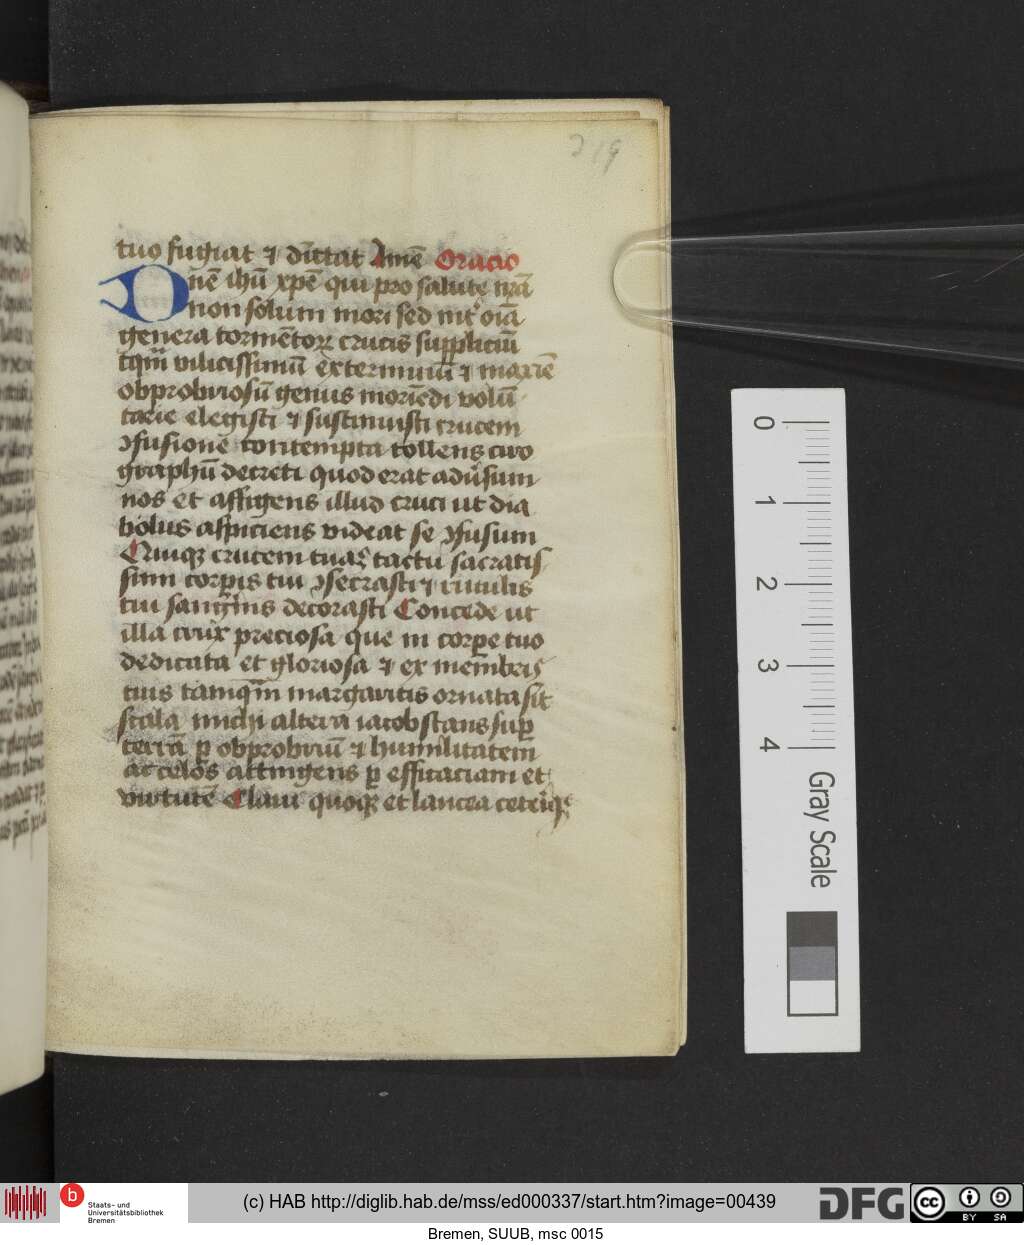 219
tuo fugiat ⁊ dūtat Amē Oracio
Dnē ihū xpē qui pro salutē nrā
non solum mori sed int̾ oīā
genera tormētoꝝ crucis suppliciū
tqm̄ vilicissimū exterminiū ⁊ maxīe
obprobriosū genus moriēdi volū
tarie elegisti ⁊ sustinuisti crucem
ꝯfusione contempta tollens ciro
graphū decreti quod erat adūsum
nos et affigens illud cruci ut dia
bolus aspiciens videat se ꝯfusum
Quiqꝫ crucem tuā tactu sacratis
simi corpis tui ꝯsecrasti ⁊ rutulis
tui sanguīnis decorasti Concede ut
illa crux preciosa que in corpe tuo
dedicata et gloriosa ⁊ ex membris
tuis tamqm̄ margaritis ornata sit
scala michi altera iacob stans suꝑ
terrā ꝑ obprobriū ⁊ humilitatem
ac celos attingens ꝑ efficaciam et
virtutē Claui quoqꝫ et lancea ceteiqꝫ
0
1
2
3
4
Gray Scale
b Staats- und
Universitätsbibliothek
Bremen
(c) HAB http://diglib.hab.de/mss/ed000337/start.htm?image=00439
DFG
cc BY SA
Bremen, SUUB, msc 0015